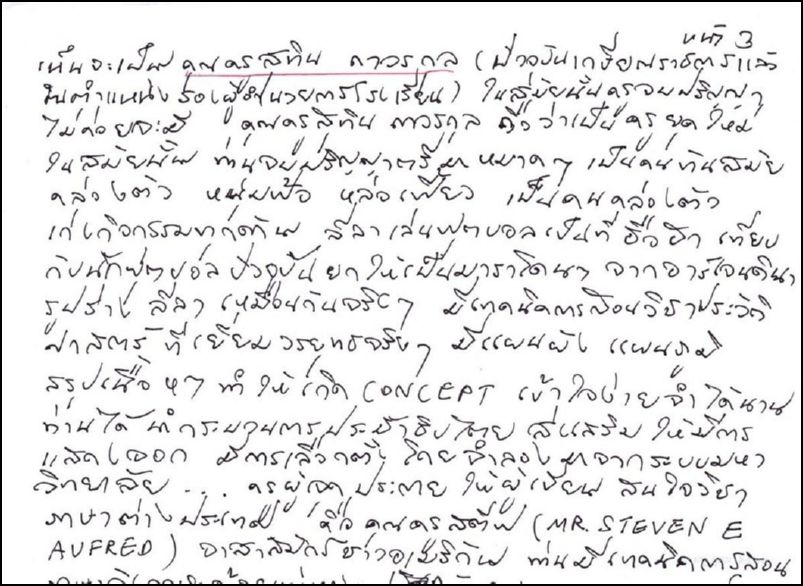 หน้า 3
เห็นจะเป็น คุณครูสทิน ถาวรกุล (ปัจจุบันเกษียณราชการแล้ว
ในตำแหน่งรองผู้อำนวยการโรงเรียน) ในสมัยนั้นครูจบปริญญา
ไม่ค่อยจะมี คุณครูสทิน ถาวรกุล ถือว่าเป็นครูยุคใหม่
ในสมัยนั้น ท่านจบปริญญาตรีมาหมาดๆ เป็นคนทันสมัย
คล่องตัว หนุ่มฟ้อ หล่อเฟี้ยว เป็นคนคล่องตัว
เก่งกิจกรรมทุกด้าน ลีลาเล่นฟุตบอลเป็นที่ฮือฮา เทียบ
กับนักฟุตบอลปัจจุบันยกให้เป็นมาราโดนา จากอาร์เจนตินา
รูปร่าง ลีลา เหมือนกันจริงๆ มีเทคนิคการสอนวิชาประวัติ
ศาสตร์ ที่เยี่ยมวรยุทธจริงๆ มีแผนผัง แผนภูมิ
สรุปเนื้อหา ทำให้เกิด CONCEPT เข้าใจง่ายจำได้นาน
ท่านได้นำกระบวนการประชาธิปไตย ส่งเสริมให้มีการ
แสดงออก มีการเลือกตั้ง โดยจำลองมาจากระบบมหา
วิทยาลัย ... ครูผู้จุดประกายให้ผู้เขียน สนใจวิชา
ภาษาต่างประเทศ คือ คุณครูสตีฟ (MR. STEVEN E
AUFRED) อาสาสมัครชาวอเมริกัน ท่านมีเทคนิคการสอน